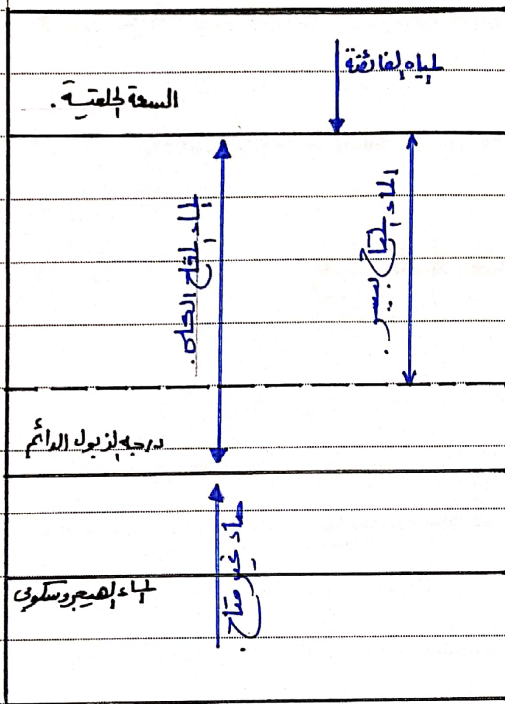 المياه الفائضة
السعة الحقلية.
الماء المتاح الكلى.
الماء المتاح بيسر.
درجه الذبول الدائم
ماء غير متاح.
الماء الهيجروسكوبى